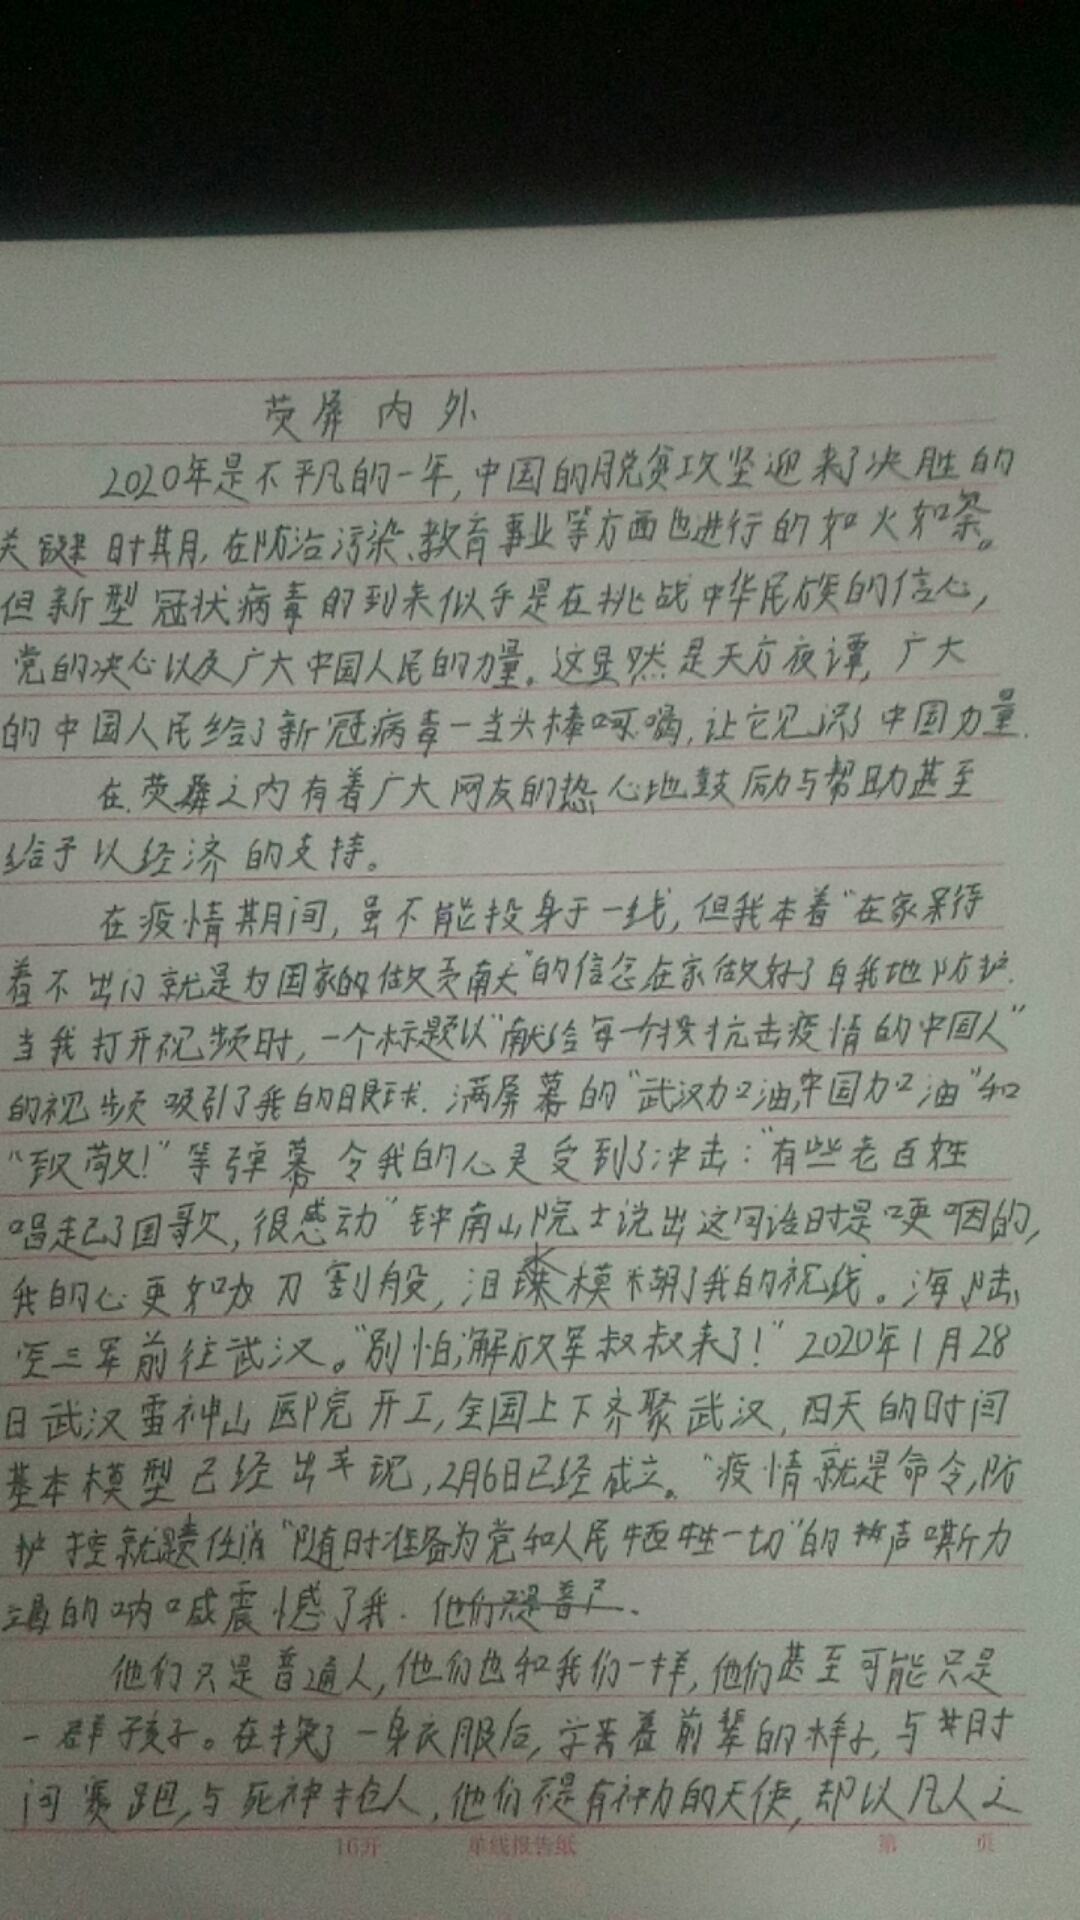 荧屏内外
2020年是不平凡的一年,中国的脱贫攻坚迎来了决胜的
关键时期,在防治污染、教育事业等方面也进行的如火如荼。
但新型冠状病毒的到来似乎是在挑战中华民族的信心,
党的决心以及广大中国人民的力量。这显然是天方夜谭,广大
的中国人民给了新冠病毒一当头棒呵喝,让它见识了中国力量.
在荧屏之内有着广大网友的热心地鼓励与帮助甚至
给予以经济的支持。
在疫情期间,虽不能投身于一线,但我本着“在家呆待
着不出门就是为国家的做贡献”的信念在家做好了自我地防护.
当我打开视频时,一个标题以“献给每一个抗击疫情的中国人”
的视频吸引了我的眼球.满屏幕的“武汉加油,中国加油”和
“致敬!”等弹幕令我的心灵受到了冲击:“有些老百姓
唱起了国歌,很感动”钟南山院士说出这句话时是哽咽的,
我的心更如刀割般,泪水模糊了我的视线。海、陆、
空三军前往武汉。“别怕,解放军叔叔来了!”2020年1月28
日武汉雷神山医院开工,全国上下齐聚武汉,四天的时间
基本模型已经出现,2月6日已经成立。“疫情就是命令,防
护控就是责任”“随时准备为党和人民牺牲一切”的声嘶力
竭的呐喊震撼了我.他们只是普
他们只是普通人,他们也和我们一样,他们甚至可能只是
一群孩子。在换了一身衣服后,学着前辈的样子,与时
间赛跑,与死神抢人,他们不是有神力的天使,却以凡人之
16开 单线报告纸 第 页